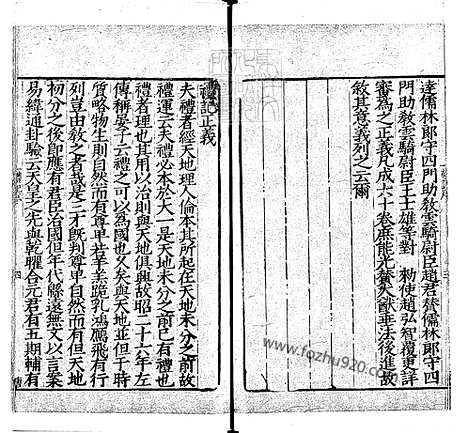 達儒林郎守四門助敎雲騎尉臣趙君贊儒林郎守四
門助敎雲騎尉臣王士雄等對 勑使趙弘智覆更詳
審爲之正義凡成六十卷庶能光贊大猷垂法後進故
敘其意義列之云爾
禮記正義
夫禮者經天地理人倫本其所起在天地未分之前故
禮運云夫禮必本於大一是天地未分之前已有禮也
禮者理也其用以治則與天地俱興故昭二十六年左
傳稱晏子云禮之可以爲國也久矣與天地並但于時
質略物生則自然而有尊卑若羊羔跪乳鴻鴈飛有行
列豈由敎之者哉是三才旣判尊卑自然而有但天地
初分之後卽應有君臣治國但年代緜遠無文以言案
易緯通卦驗云天皇之先與乾曜合元君有五期輔有
www.fozhu920.com